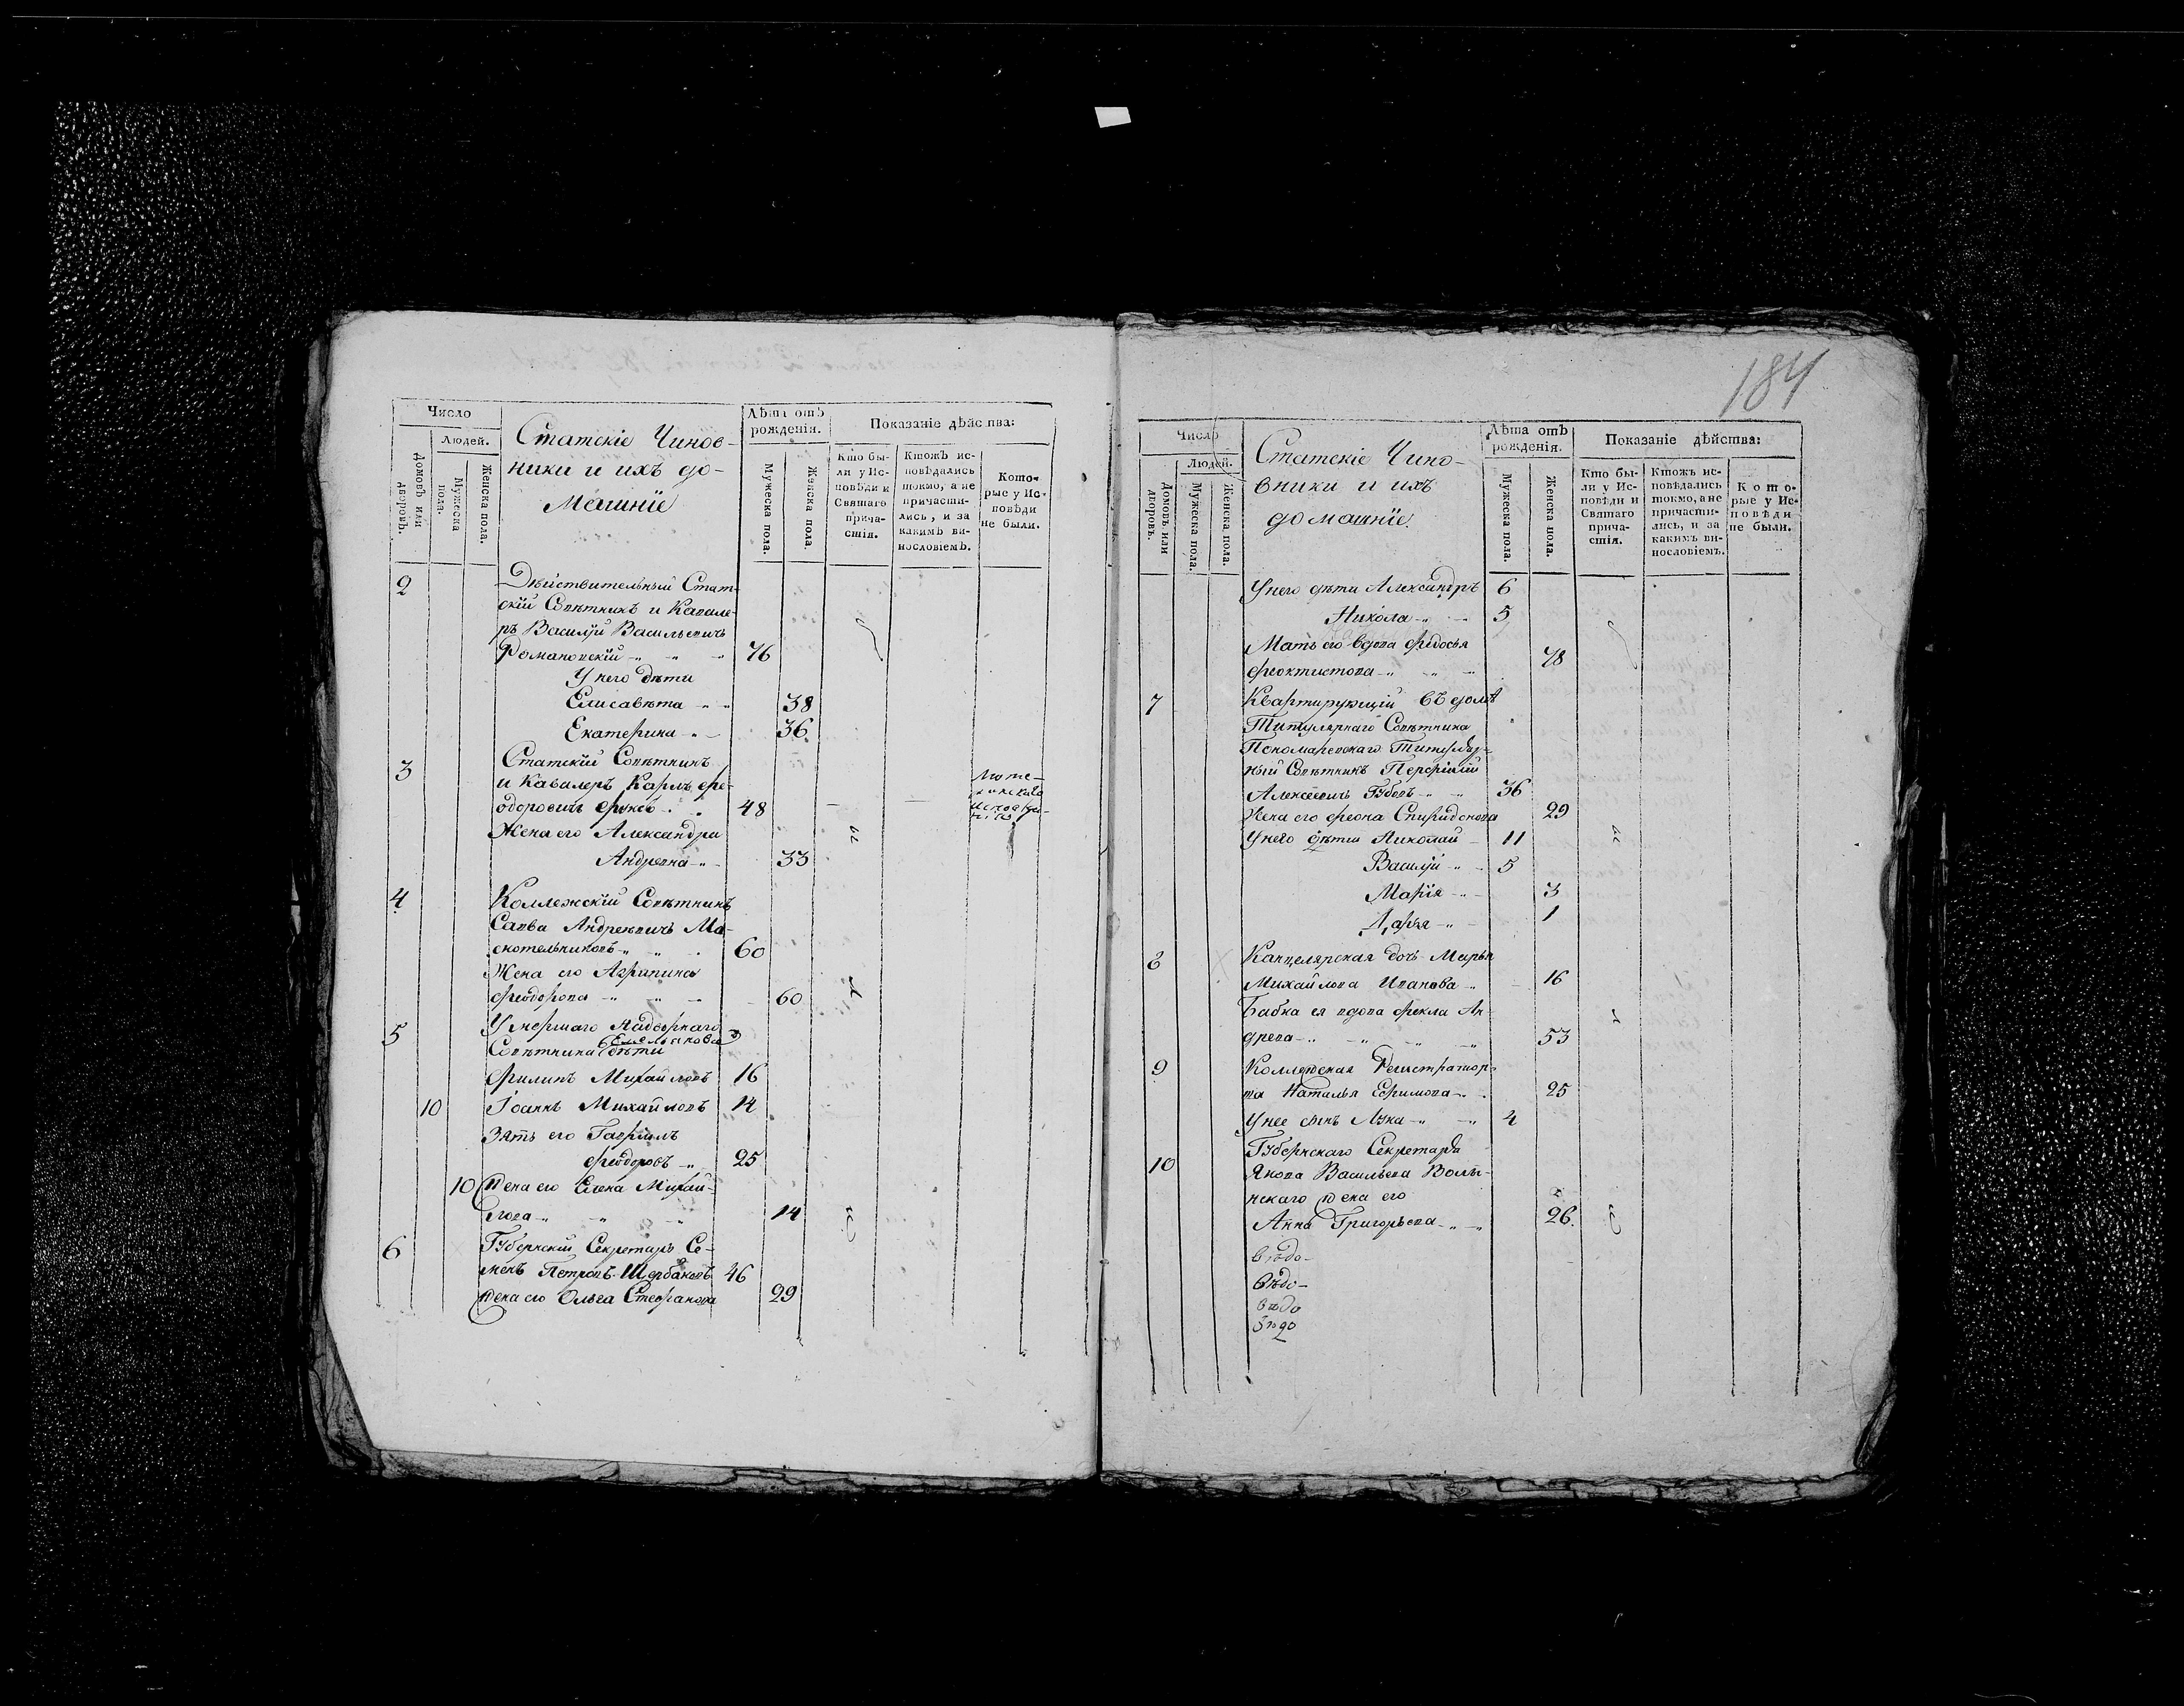 Число
Людей.
Домовъ или дворовъ.
Мужеска пола.
Женска пола.
Статскіе Чинов-
ники и ихъ до-
машніе
Лѣта отъ
рожденія.
Мужеска пола.
Женска пола.
Показаніе дѣйства:
Кто бы-
ли у Ис-
повѣди и
Святаго
прича-
стія.
Ктожъ ис-
повѣдались
токмо, а не
причасти-
лись, и за
какимъ ви-
нословіемъ.
Кото-
рые у Ис-
повѣди
не были.
2 Дѣйствительный Стат-
скій Совѣтникъ и Кавале-
ръ Василій Васильевичь
Романовскій 76
У него дѣти
Елисавѣта 38
Екатерина 36
3 Статскій Совѣтникъ
и Кавалеръ Карлъ Фе-
одоровичь Фуксъ 48
Жена его Александра
Андревна 33
4 Коллежскій Совѣтникъ
Савва Андреевичь Мо-
скотельниковъ 60
Жена его Агрипина
Феодорова 60
5 Умершаго Надворнаго
Совѣтника Емельянова дѣти
Филипъ Михайловъ 16
10 Іоаннъ Михайловъ 14
Зять его Гавріилъ
Феодоровъ 25
10 Жена его Елена Михай-
лова 14
6 Губернскій Секретарь Се-
менъ Петровъ Щербаковъ 46
Жена его Ольга Стефанова 29
184
Число
Людей.
Домовъ или дворовъ.
Мужеска пола.
Женска пола.
Статскіе Чино-
вники и ихъ
домашніе.
Лѣта отъ
рожденія.
Мужеска пола.
Женска пола.
Показаніе дѣйства:
Кто бы-
ли у Ис-
повѣди и
Святаго
прича-
стія.
Ктожъ ис-
повѣдались
токмо, а не
причасти-
лись, и за
какимъ ви-
нословіемъ.
Кото-
рые у Ис-
повѣди
не были.
У него дѣти Александръ 6
Никола 5
Мать его вдова Фидосья
Феоктистова 78
7 Квартирующій въ домѣ
Титулярнаго Совѣтника
Пономаревскаго Титуляр-
ный Совѣтникъ Перфилий
Алексеевичь Губовъ 36
Жена его Феона Спиридонова 29
У него дѣти Николай 11
Василій 5
Марія 3
Дарья 1
8 Канцелярская дочь Марья
Михайлова Иванова 16
Бабка ея вдова Фекла Ан-
древа 53
9 Коллежская Регистратор-
ша Наталья Ефимова 25
У нее сынъ Лука 4
10 Губернскаго Секретаря
Якова Васильева Волы-
нскаго жена его
Анна Григорьева 26